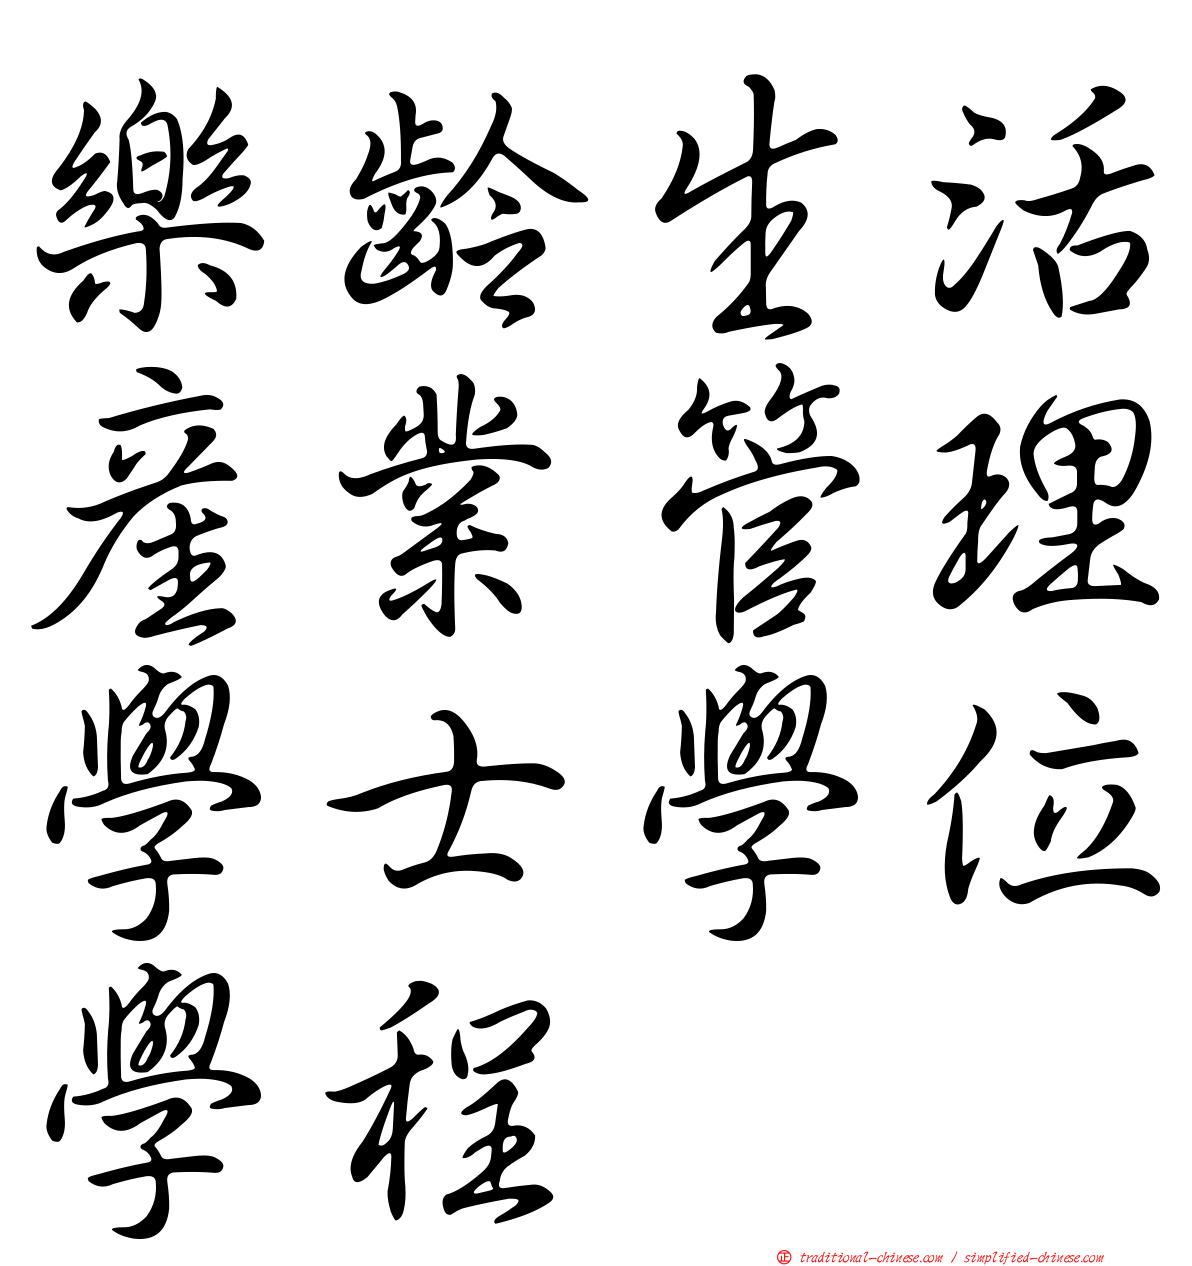 樂齡生活
產業管理
學士學位
學程
㊣ traditional-chinese.com / simplified-chinese.com